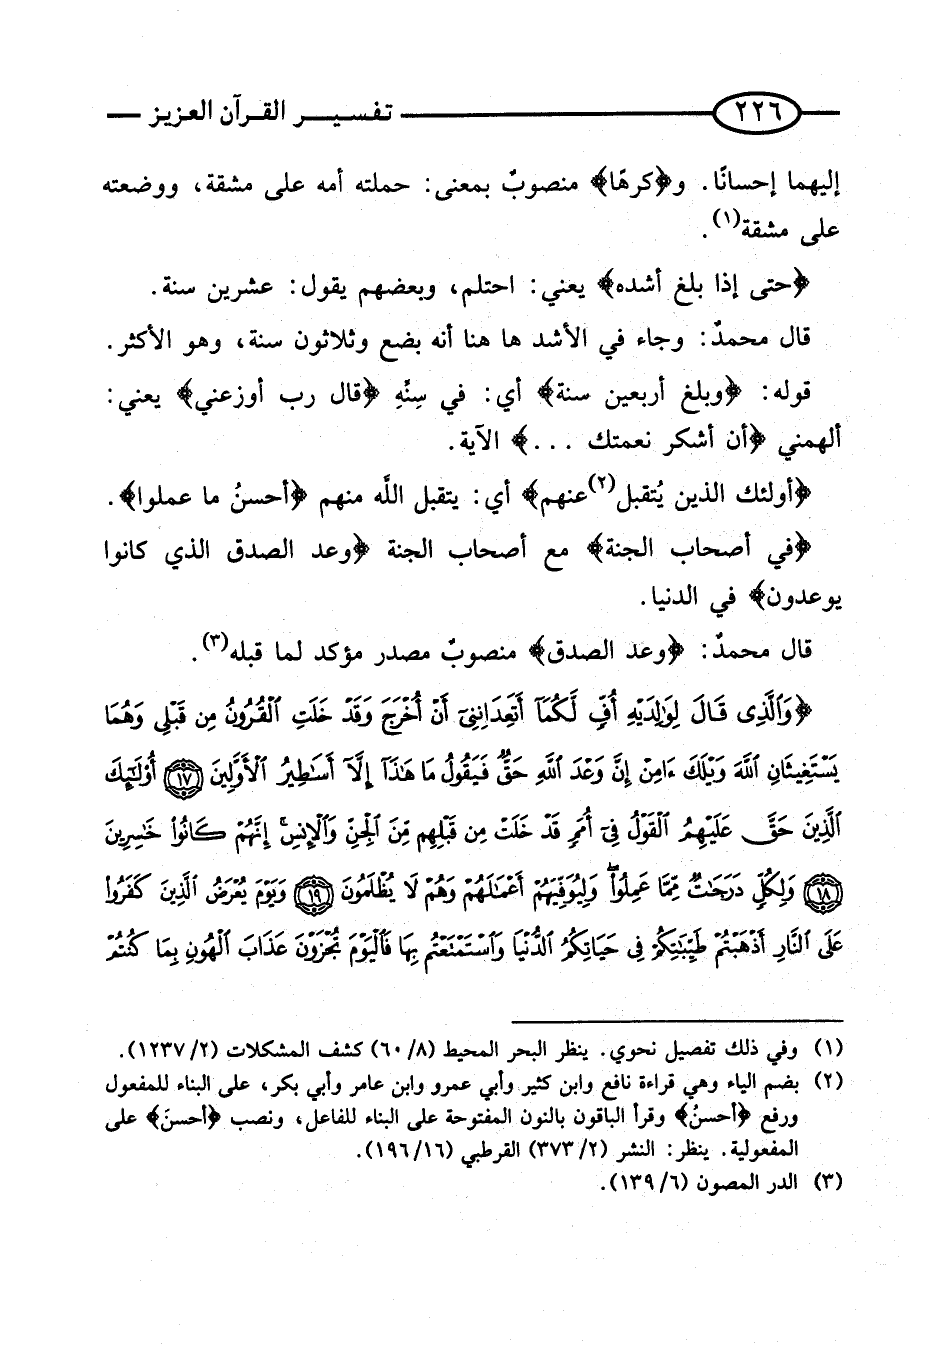 ٢٢٦ تفسير القرآن العزيز
إليهما إحسانًا. و﴿كرهًا﴾ منصوبٌ بمعنى: حملته أمه على مشقة، ووضعته
على مشقة(١).
﴿حتى إذا بلغ أشده﴾ يعني: احتلم، وبعضهم يقول: عشرين سنة.
قال محمدٌ: وجاء في الأشد ها هنا أنه بضع وثلاثون سنة، وهو الأكثر.
قوله: ﴿وبلغ أربعين سنة﴾ أي: في سِنِّهِ ﴿قال رب أوزعني﴾ يعني:
ألهمني ﴿أن أشكر نعمتك ...﴾ الآية.
﴿أولئك الذين يُتقبل(٢)عنهم﴾ أي: يتقبل اللَّه منهم ﴿أحسنُ ما عملوا﴾.
﴿في أصحاب الجنة﴾ مع أصحاب الجنة ﴿وعد الصدق الذي كانوا
يوعدون﴾ في الدنيا.
قال محمدٌ: ﴿وعد الصدق﴾ منصوبٌ مصدر مؤكد لما قبله(٣).
﴿وَٱلَّذِى قَالَ لِوَٰلِدَيْهِ أُفٍّ لَّكُمَآ أَتَعِدَانِنِىٓ أَنْ أُخْرَجَ وَقَدْ خَلَتِ ٱلْقُرُونُ مِن قَبْلِى وَهُمَا
يَسْتَغِيثَانِ ٱللَّهَ وَيْلَكَ ءَامِنْ إِنَّ وَعْدَ ٱللَّهِ حَقٌّ فَيَقُولُ مَا هَٰذَآ إِلَّآ أَسَٰطِيرُ ٱلْأَوَّلِينَ ١٧ أُو۟لَٰٓئِكَ
ٱلَّذِينَ حَقَّ عَلَيْهِمُ ٱلْقَوْلُ فِىٓ أُمَمٍ قَدْ خَلَتْ مِن قَبْلِهِم مِّنَ ٱلْجِنِّ وَٱلْإِنسِ ۖ إِنَّهُمْ كَانُوا۟ خَٰسِرِينَ
١٨ وَلِكُلٍّ دَرَجَٰتٌ مِّمَّا عَمِلُوا۟ ۖ وَلِيُوَفِّيَهُمْ أَعْمَٰلَهُمْ وَهُمْ لَا يُظْلَمُونَ ١٩ وَيَوْمَ يُعْرَضُ ٱلَّذِينَ كَفَرُوا۟
عَلَى ٱلنَّارِ أَذْهَبْتُمْ طَيِّبَٰتِكُمْ فِى حَيَاتِكُمُ ٱلدُّنْيَا وَٱسْتَمْتَعْتُم بِهَا فَٱلْيَوْمَ تُجْزَوْنَ عَذَابَ ٱلْهُونِ بِمَا كُنتُمْ
(١) وفي ذلك تفصيل نحوي. ينظر البحر المحيط (٦٠/٨) كشف المشكلات (١٢٣٧/٢).
(٢) بضم الياء وهي قراءة نافع وابن كثير وأبي عمرو وابن عامر وأبي بكر، على البناء للمفعول
ورفع ﴿أحسنُ﴾ وقرأ الباقون بالنون المفتوحة على البناء للفاعل، ونصب ﴿أحسنَ﴾ على
المفعولية. ينظر: النشر (٣٧٣/٢) القرطبي (١٩٦/١٦).
(٣) الدر المصون (١٣٩/٦).